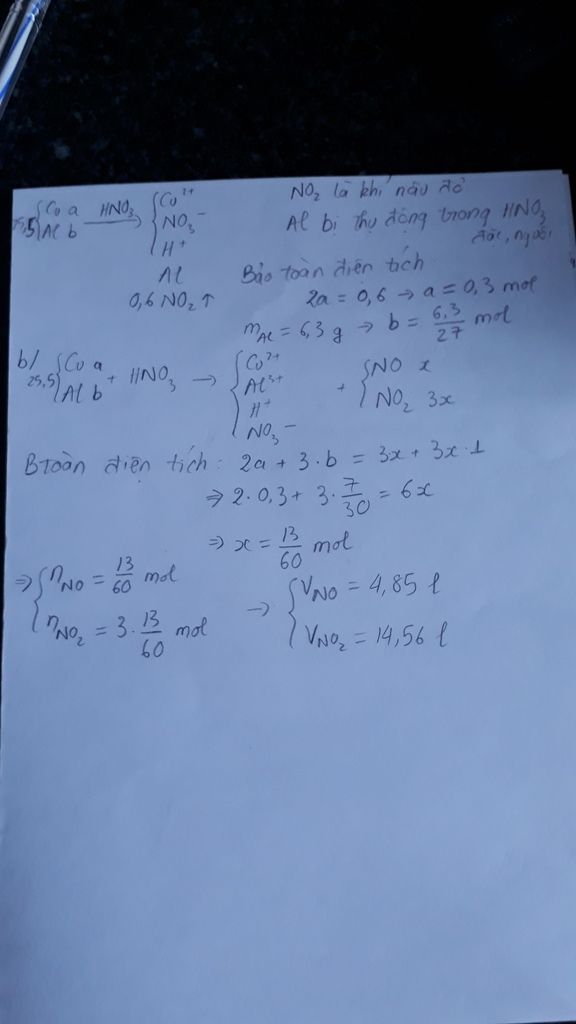 25,5 { Cu a Al b —HNO₃→ { Cu²⁺ NO₃⁻ H⁺
Al
0,6 NO₂↑
NO₂ là khí nâu đỏ
Al bị thụ động trong HNO₃
đặc, nguội
Bảo toàn điện tích
2a = 0,6 → a = 0,3 mol
m_Al = 6,3 g → b = 6,3/27 mol
b/ 25,5 { Cu a Al b + HNO₃ → { Cu²⁺ Al³⁺ H⁺ NO₃⁻ + { NO x NO₂ 3x
BToàn điện tích: 2a + 3·b = 3x + 3x·1
⇒ 2·0,3 + 3·7/30 = 6x
⇒ x = 13/60 mol
⇒ { n_NO = 13/60 mol n_NO₂ = 3·13/60 mol → { V_NO = 4,85 l V_NO₂ = 14,56 l